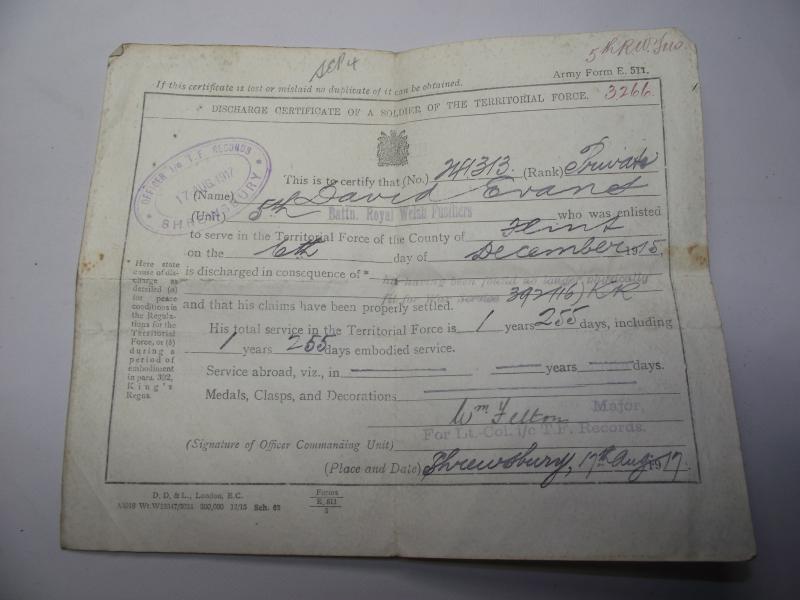 5th R.W. Fus.
SCP4
If this certificate is lost or mislaid no duplicate of it can be obtained.
Army Form E. 511.
DISCHARGE CERTIFICATE OF A SOLDIER OF THE TERRITORIAL FORCE.
3266.
OFFICER i/c T.F. RECORDS
17 AUG. 1917
SHREWSBURY
This is to certify that (No.) 241313 (Rank) Private
(Name) David Evans
(Unit) 5th Battn. Royal Welsh Fusiliers who was enlisted
to serve in the Territorial Force of the County of Flint
on the 6th day of December 1915.
is discharged in consequence of * his having been found no longer physically
fit for war service 392(16) KR
and that his claims have been properly settled.
His total service in the Territorial Force is 1 years 255 days, including
1 years 255 days embodied service.
Service abroad, viz., in years days.
Medals, Clasps, and Decorations
Wm Felton Major,
For Lt.-Col. i/c T.F. Records.
(Signature of Officer Commanding Unit)
(Place and Date) Shrewsbury, 17th Aug 1917.
* Here state
cause of dis-
charge as
detailed (a)
for peace
conditions in
the Regula-
tions for the
Territorial
Force, or (b)
during a
period of
embodiment
in para. 392,
King's
Regns.
D. D. & L., London, E.C.
Wt. 300,000 12/15 Sch. 62
Forms
E. 511
3